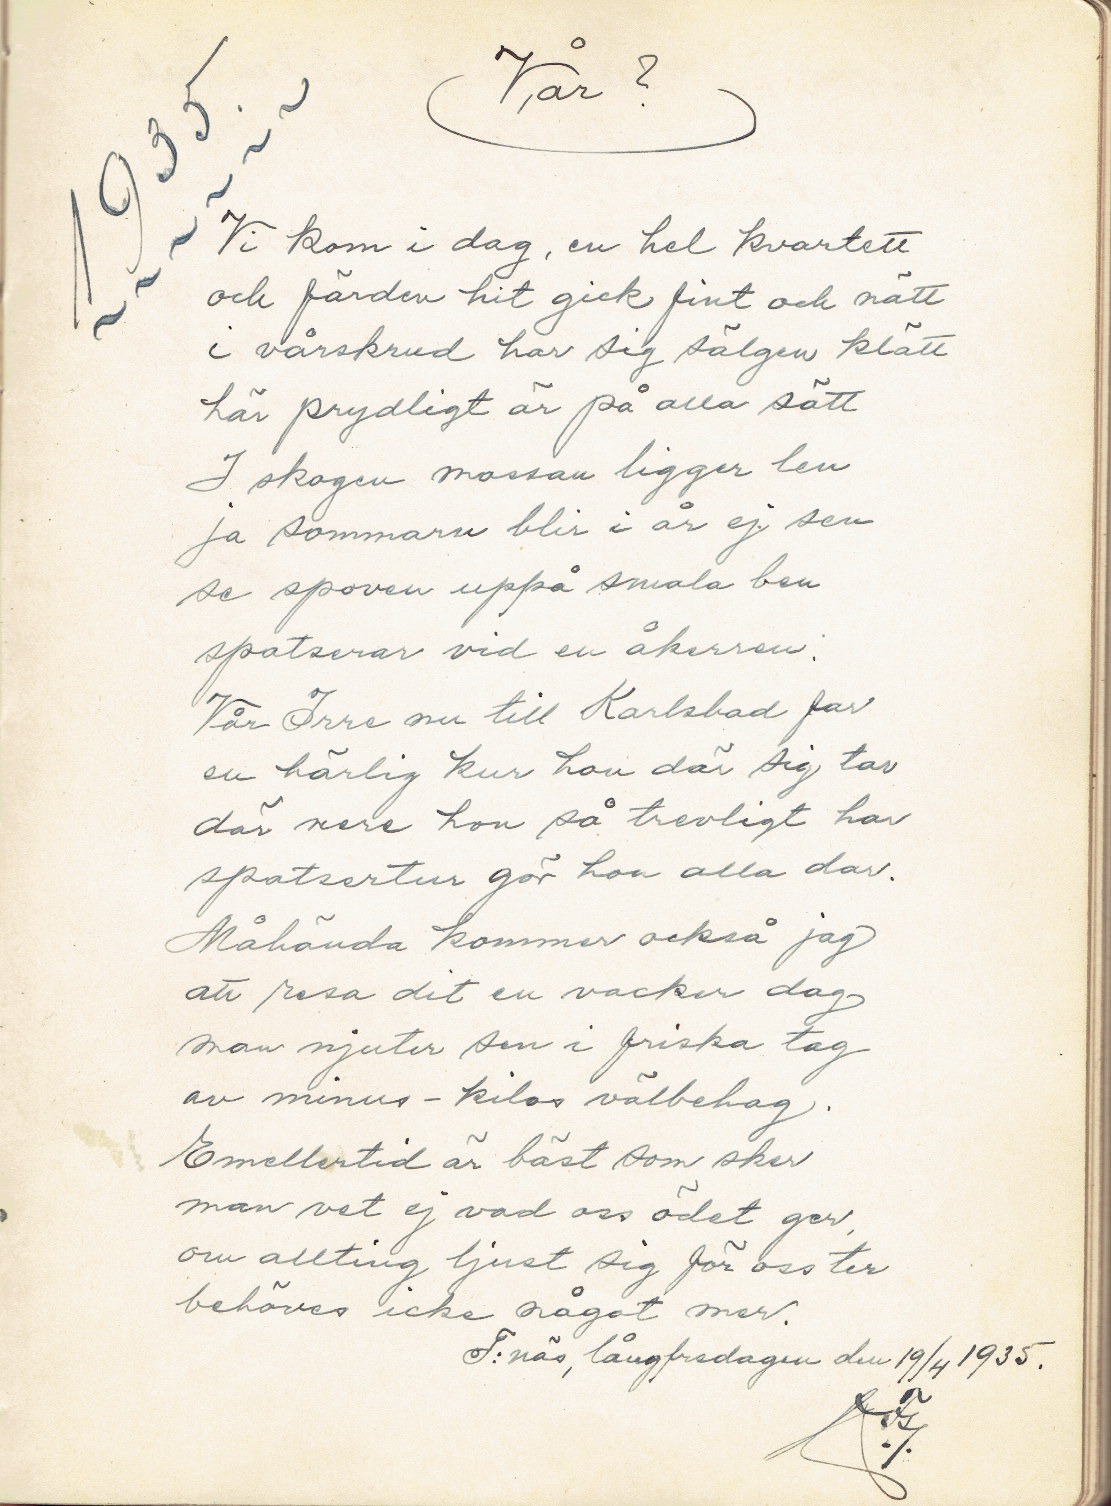 Vår?
1935.
Vi kom i dag, en hel kvartett
och färden hit gick fint och nätt
i vårskrud har sig sälgen klätt
här prydligt är på alla sätt
I skogen mossan ligger len
ja sommarn blir i år ej sen
se spoven uppå smala ben
spatserar vid en åkerren.
Vår Irre nu till Karlsbad far
en härlig kur hon där sig tar
där nere hon så trevligt har
spatsertur gör hon alla dar.
Måhända kommer också jag
att resa dit en vacker dag
man njuter sen i friska tag
av minus-kilos välbehag.
Emellertid är bäst som sker
man vet ej vad oss ödet ger,
om allting ljust sig för oss ter
behöves icke något mer.
T:näs, långfredagen den 19/4 1935.